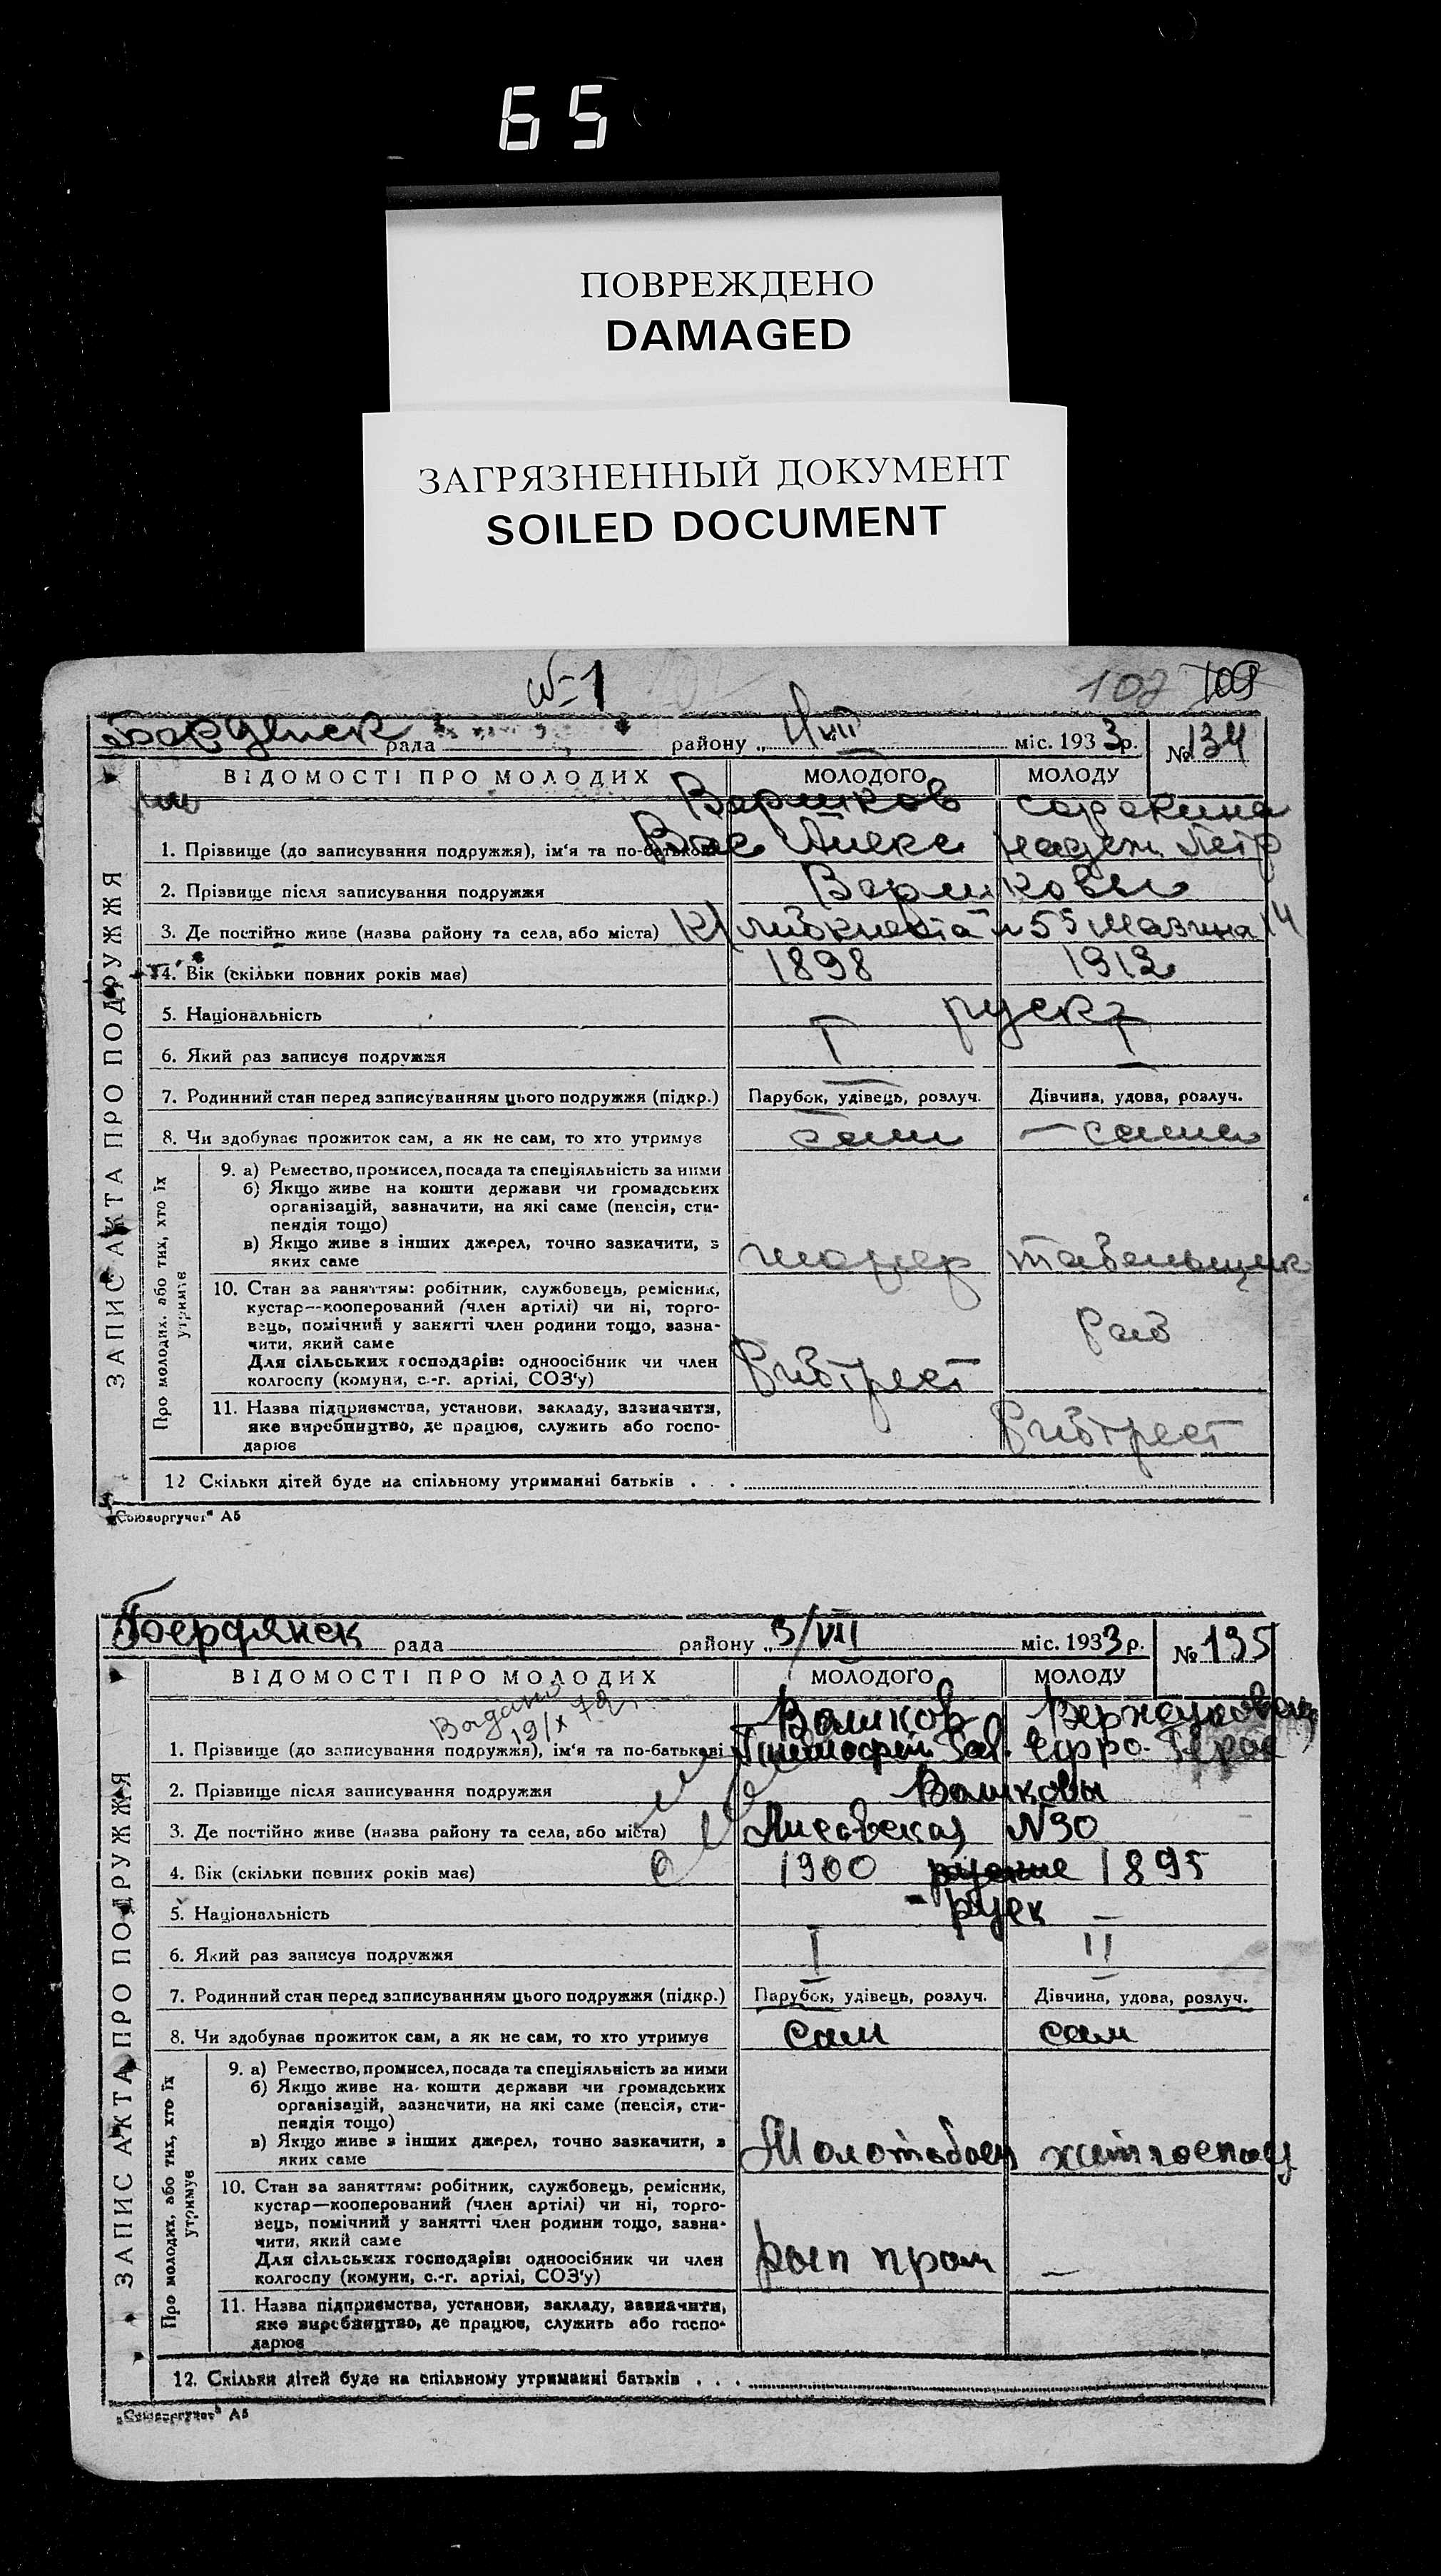 65
ПОВРЕЖДЕНО
DAMAGED
ЗАГРЯЗНЕННЫЙ ДОКУМЕНТ
SOILED DOCUMENT
№ 1
107 109
рада району „ міс. 1933р. № 134
ВІДОМОСТІ ПРО МОЛОДИХ МОЛОДОГО МОЛОДУ
ЗАПИС АКТА ПРО ПОДРУЖЖЯ
Варшков Сорокина
1. Прізвище (до записування подружжя), ім'я та по-батькові Вас Алекс Надеж. Петр
2. Прізвище після записування подружжя Варшковы
3. Де постійно живе (назва району та села, або міста) К Либкнехта 55 Мазина 14
4. Вік (скільки повних років має) 1898 1912
5. Національність русск
6. Який раз записує подружжя I I
7. Родинний стан перед записуванням цього подружжя (підкр.) Парубок, удівець, розлуч. Дівчина, удова, розлуч.
8. Чи здобуває прожиток сам, а як не сам, то хто утримує сам — сама
Про молодих, або тих, хто їх утримує
9. а) Ремество, промисел, посада та спеціяльність за ними
б) Якщо живе на кошти держави чи громадських
організацій, зазначити, на які саме (пенсія, сти-
пендія тощо)
в) Якщо живе з інших джерел, точно зазначити, з
яких саме шофер табельщик
10. Стан за заняттям: робітник, службовець, ремісник,
кустар—кооперований (член артілі) чи ні, торго-
вець, помічний у занятті член родини тощо, зазна-
чити, який саме раб
Для сільських господарів: одноосібник чи член
колгоспу (комуни, с.-г. артілі, СОЗ'у) Рибтрест
11. Назва підприємства, установи, закладу, зазначити,
яке виробництво, де працює, служить або госпо- Рибтрест
дарює
12 Скільки дітей буде на спільному утриманні батьків . . .
„Союзоргучет" А5
Бердянск рада району „ 3/VII міс. 1933р. № 135
ВІДОМОСТІ ПРО МОЛОДИХ МОЛОДОГО МОЛОДУ
ЗАПИС АКТА ПРО ПОДРУЖЖЯ
19/X 72
Волков
1. Прізвище (до записування подружжя), ім'я та по-батькові Тимофей Ефро.
2. Прізвище після записування подружжя Волковы
3. Де постійно живе (назва району та села, або міста) Лисовская N 30
4. Вік (скільки повних років має) 1900 1895
5. Національність - русск
6. Який раз записує подружжя I II
7. Родинний стан перед записуванням цього подружжя (підкр.) Парубок, удівець, розлуч. Дівчина, удова, розлуч.
8. Чи здобуває прожиток сам, а як не сам, то хто утримує сам сам
Про молодих, або тих, хто їх утримує
9. а) Ремество, промисел, посада та спеціяльність за ними
б) Якщо живе на кошти держави чи громадських
організацій, зазначити, на які саме (пенсія, сти-
пендія тощо)
в) Якщо живе з інших джерел, точно зазначити, з
яких саме Молотобоец
10. Стан за заняттям: робітник, службовець, ремісник,
кустар—кооперований (член артілі) чи ні, торго-
вець, помічний у занятті член родини тощо, зазна-
чити, який саме
Для сільських господарів: одноосібник чи член
колгоспу (комуни, с.-г. артілі, СОЗ'у) пром —
11. Назва підприємства, установи, закладу, зазначити,
яке виробництво, де працює, служить або госпо-
дарює
12. Скільки дітей буде на спільному утриманні батьків . . .
„Союзоргучет" А5